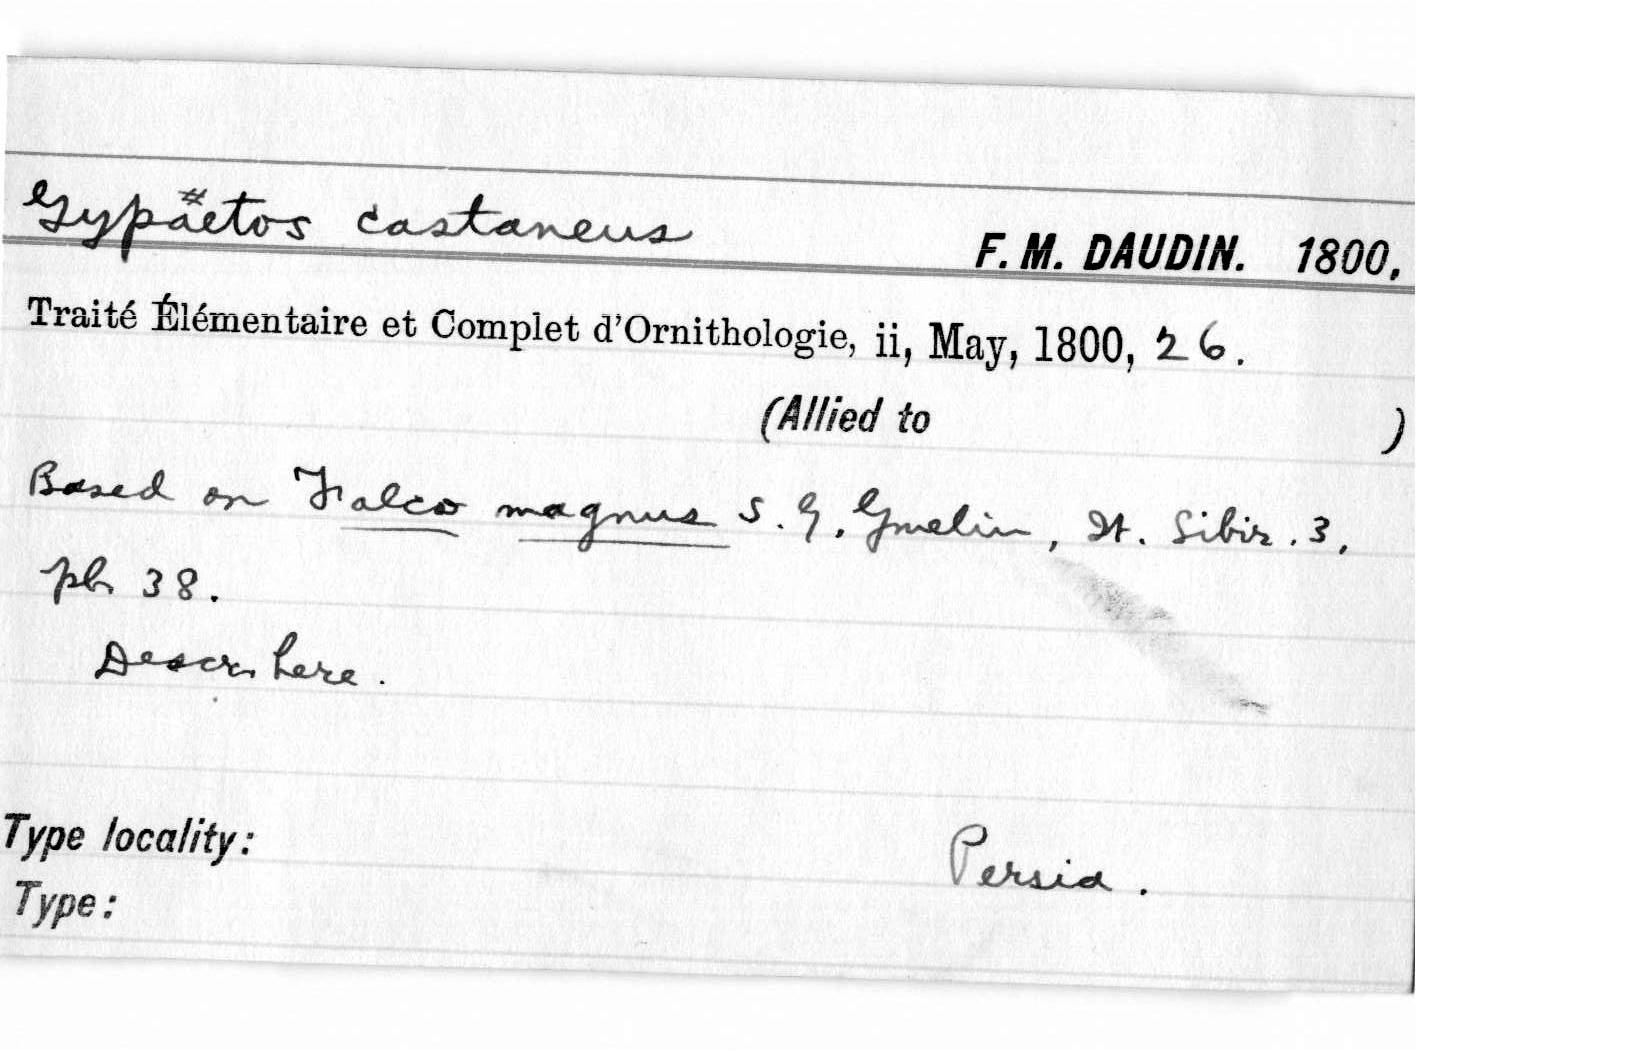 Gypäetos castaneus
F. M. DAUDIN. 1800,
Traité Élémentaire et Complet d'Ornithologie, ii, May, 1800, 26.
(Allied to )
Based on Falco magnus S. G. Gmelin, It. Sibir. 3,
pl. 38.
Descr. here.
Type locality: Persia.
Type: